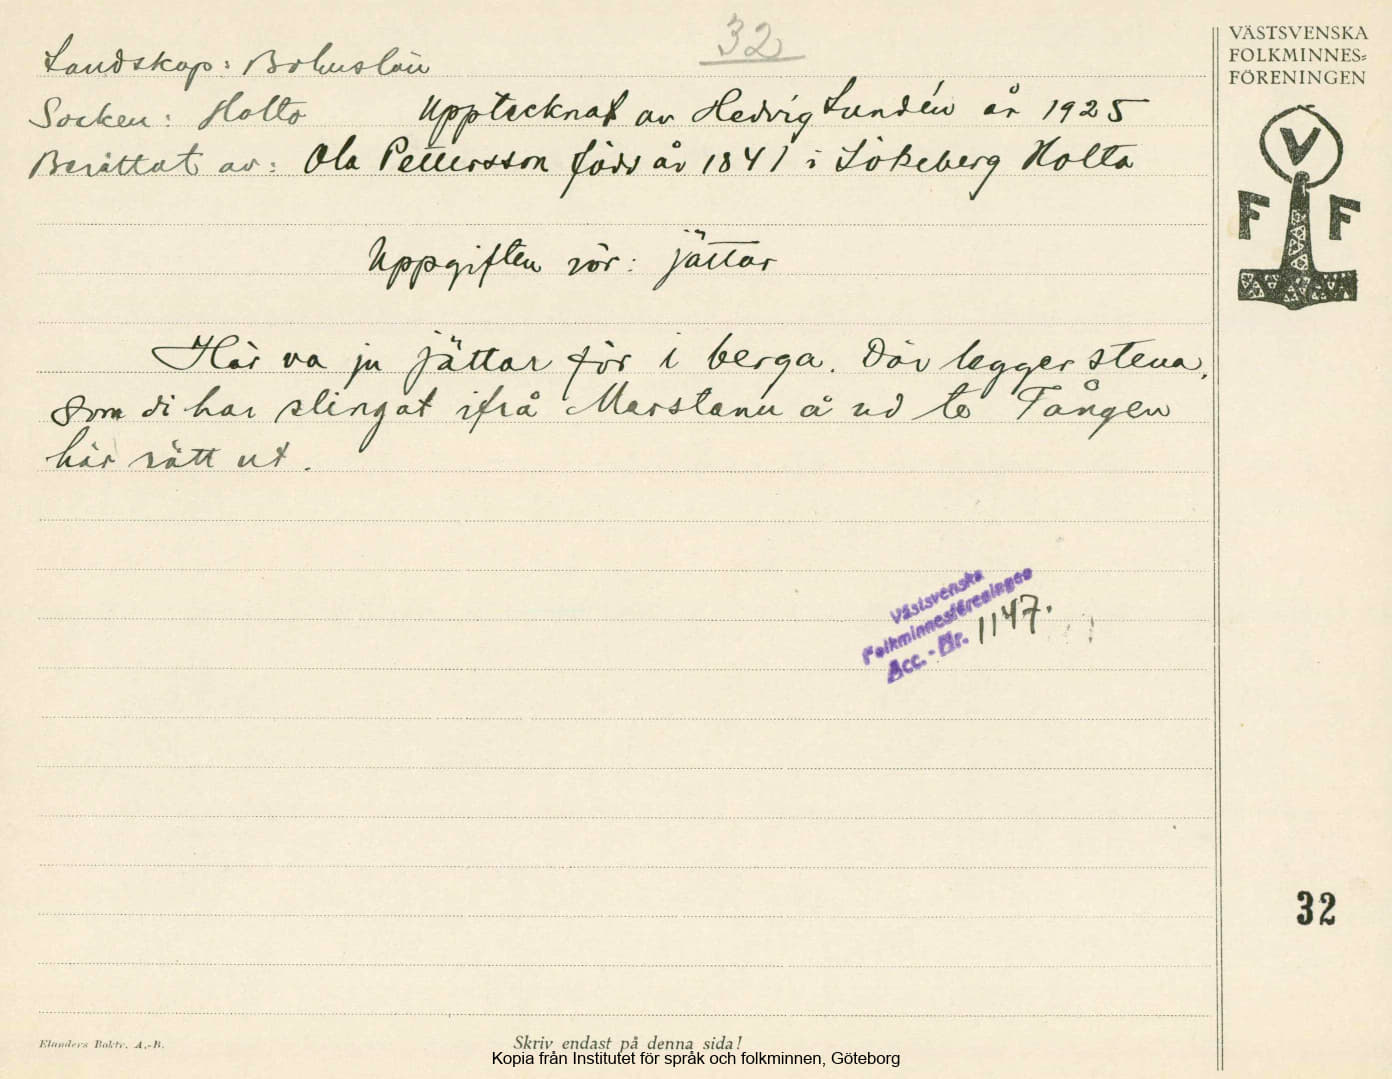 32
VÄSTSVENSKA
FOLKMINNES=
FÖRENINGEN
V
F F
Landskap: Bohuslän
Socken: Holta Upptecknat av Hedvig Lundén år 1925
Berättat av: Ola Pettersson född år 1841 i Lökeberg Holta
Uppgiften rör: jättar
Här va ju jättar för i berga. Där legger stena,
som di har slingat ifrå Marstann å ud te Tången
här rätt ut.
Västsvenska
Folkminnesföreningen
Acc.-Nr. 1147.
32
Elanders Boktr. A.-B.
Skriv endast på denna sida!
Kopia från Institutet för språk och folkminnen, Göteborg